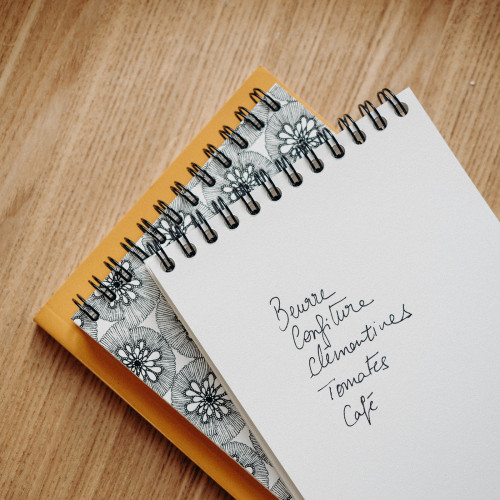 Beurre
Confiture
Clémentines
Tomates
Café